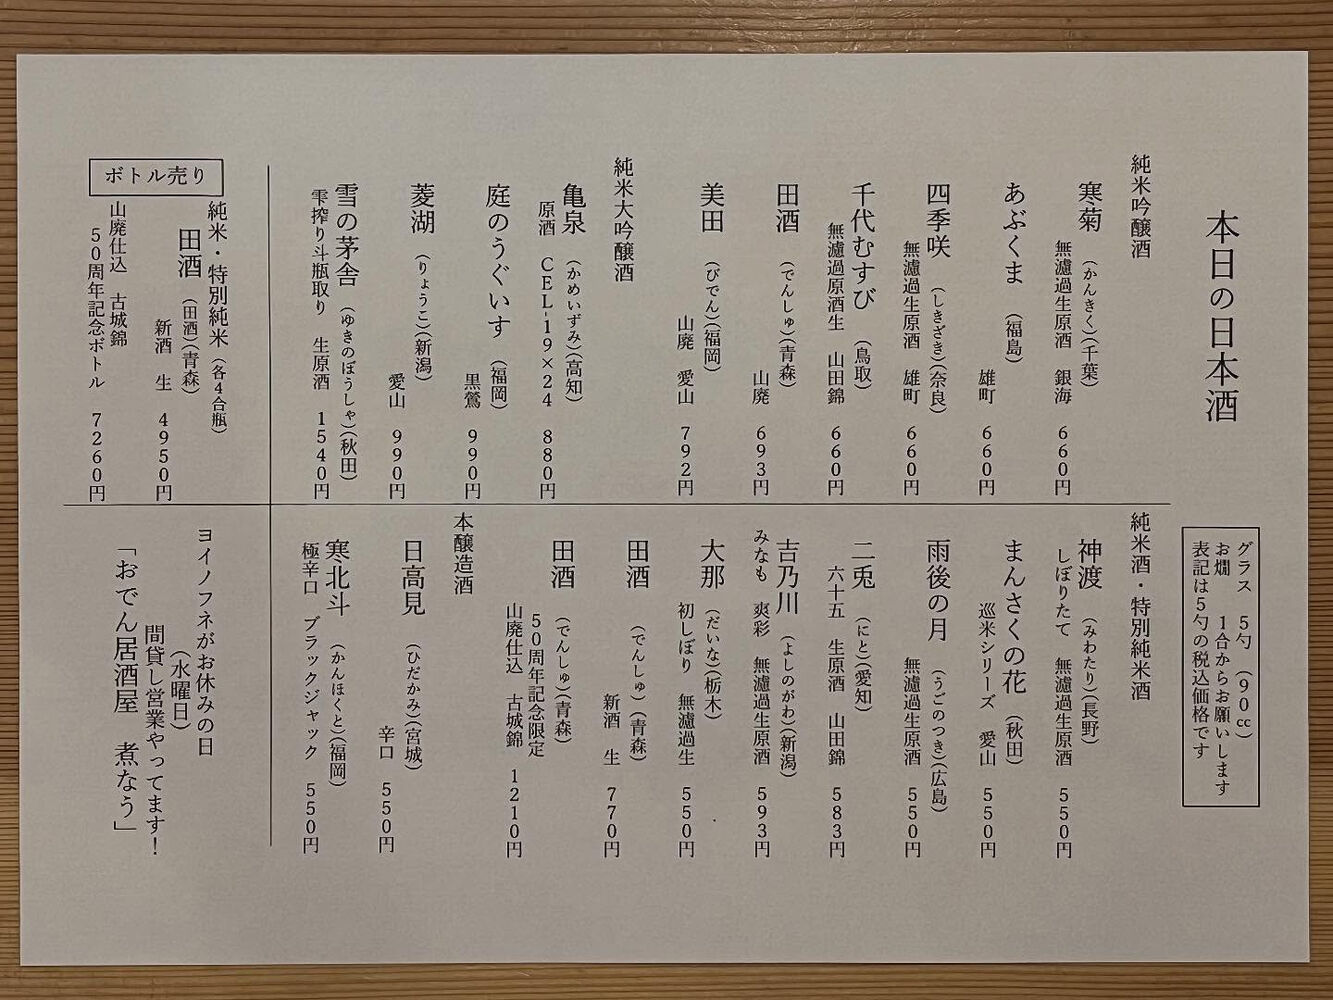 本日の日本酒
グラス　5勺　(90cc)
お燗　1合からお願いします
表記は5勺の税込価格です
純米吟醸酒
寒菊　(かんきく)(千葉)
無濾過生原酒　銀海　660円
あぶくま　(福島)
雄町　660円
四季咲　(しきざき)(奈良)
無濾過生原酒　雄町　660円
千代むすび　(鳥取)
無濾過原酒生　山田錦　660円
田酒　(でんしゅ)(青森)
山廃　693円
美田　(びでん)(福岡)
山廃　愛山　792円
純米大吟醸酒
亀泉　(かめいずみ)(高知)
原酒　CEL-19×24　880円
庭のうぐいす　(福岡)
黒鶯　990円
菱湖　(りょうこ)(新潟)
愛山　990円
雪の茅舎　(ゆきのぼうしゃ)(秋田)
雫搾り斗瓶取り　生原酒　1540円
純米酒・特別純米酒
神渡　(みわたり)(長野)
しぼりたて　無濾過生原酒　550円
まんさくの花　(秋田)
巡米シリーズ　愛山　550円
雨後の月　(うごのつき)(広島)
無濾過生原酒　550円
二兎　(にと)(愛知)
六十五　生原酒　山田錦　583円
吉乃川　(よしのがわ)(新潟)
みなも　爽彩　無濾過生原酒　593円
大那　(だいな)(栃木)
初しぼり　無濾過生　550円
田酒　(でんしゅ)(青森)
新酒　生　770円
田酒　(でんしゅ)(青森)
50周年記念限定
山廃仕込　古城錦　1210円
本醸造酒
日高見　(ひだかみ)(宮城)
辛口　550円
寒北斗　(かんほくと)(福岡)
極辛口　ブラックジャック　550円
ボトル売り
純米・特別純米　(各4合瓶)
田酒　(田酒)(青森)
新酒　生　4950円
山廃仕込　古城錦
50周年記念ボトル　7260円
ヨイノフネがお休みの日
(水曜日)
間貸し営業やってます！
「おでん居酒屋　煮なう」